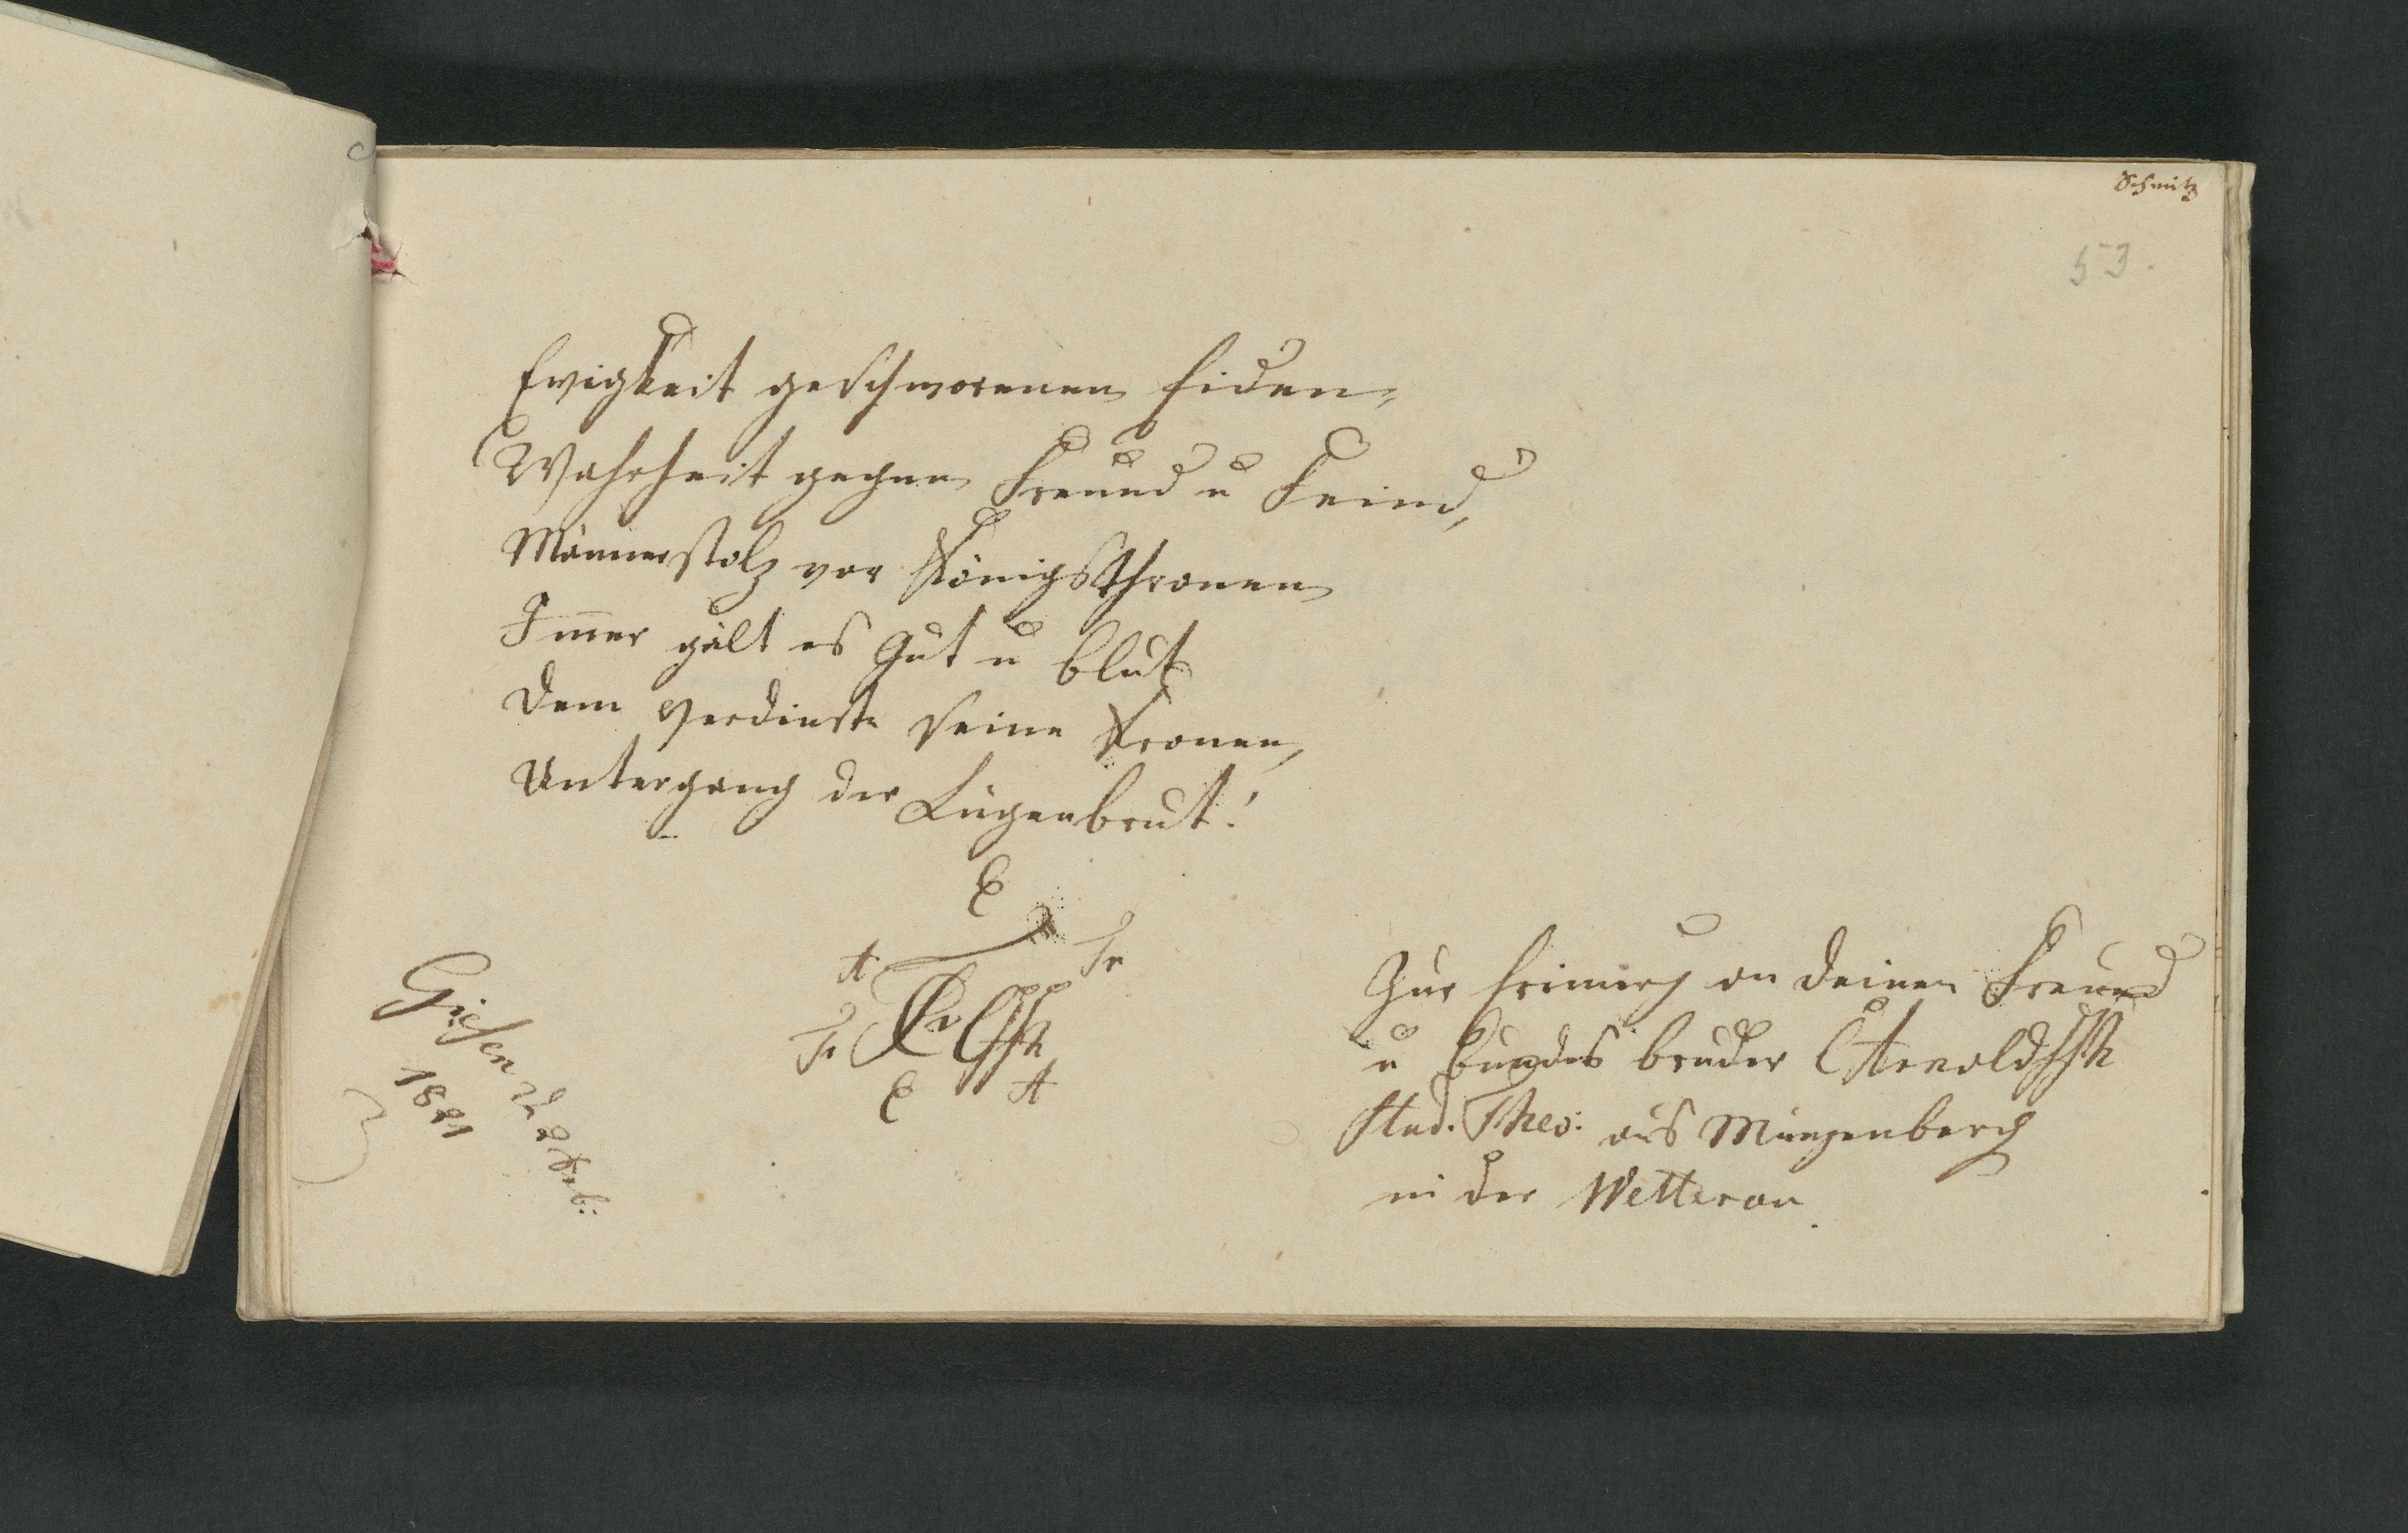 Schmitz
53.
Ewigkeit geschworenen Eiden,
Wahrheit gegen Freund u Feind,
Männerstolz vor Königsthronen
Immer gält es Gut u Blut
Dem Verdienste seine Kronen,
Untergang der Lügenbrut!
E
A Fr
Fr
E A
Giesen d
1821
Zur Erinnrg an Deinen Freund
u Bundes bruder CArnold
Stud. Theo: aus Münzenberg
in der Wetterau.